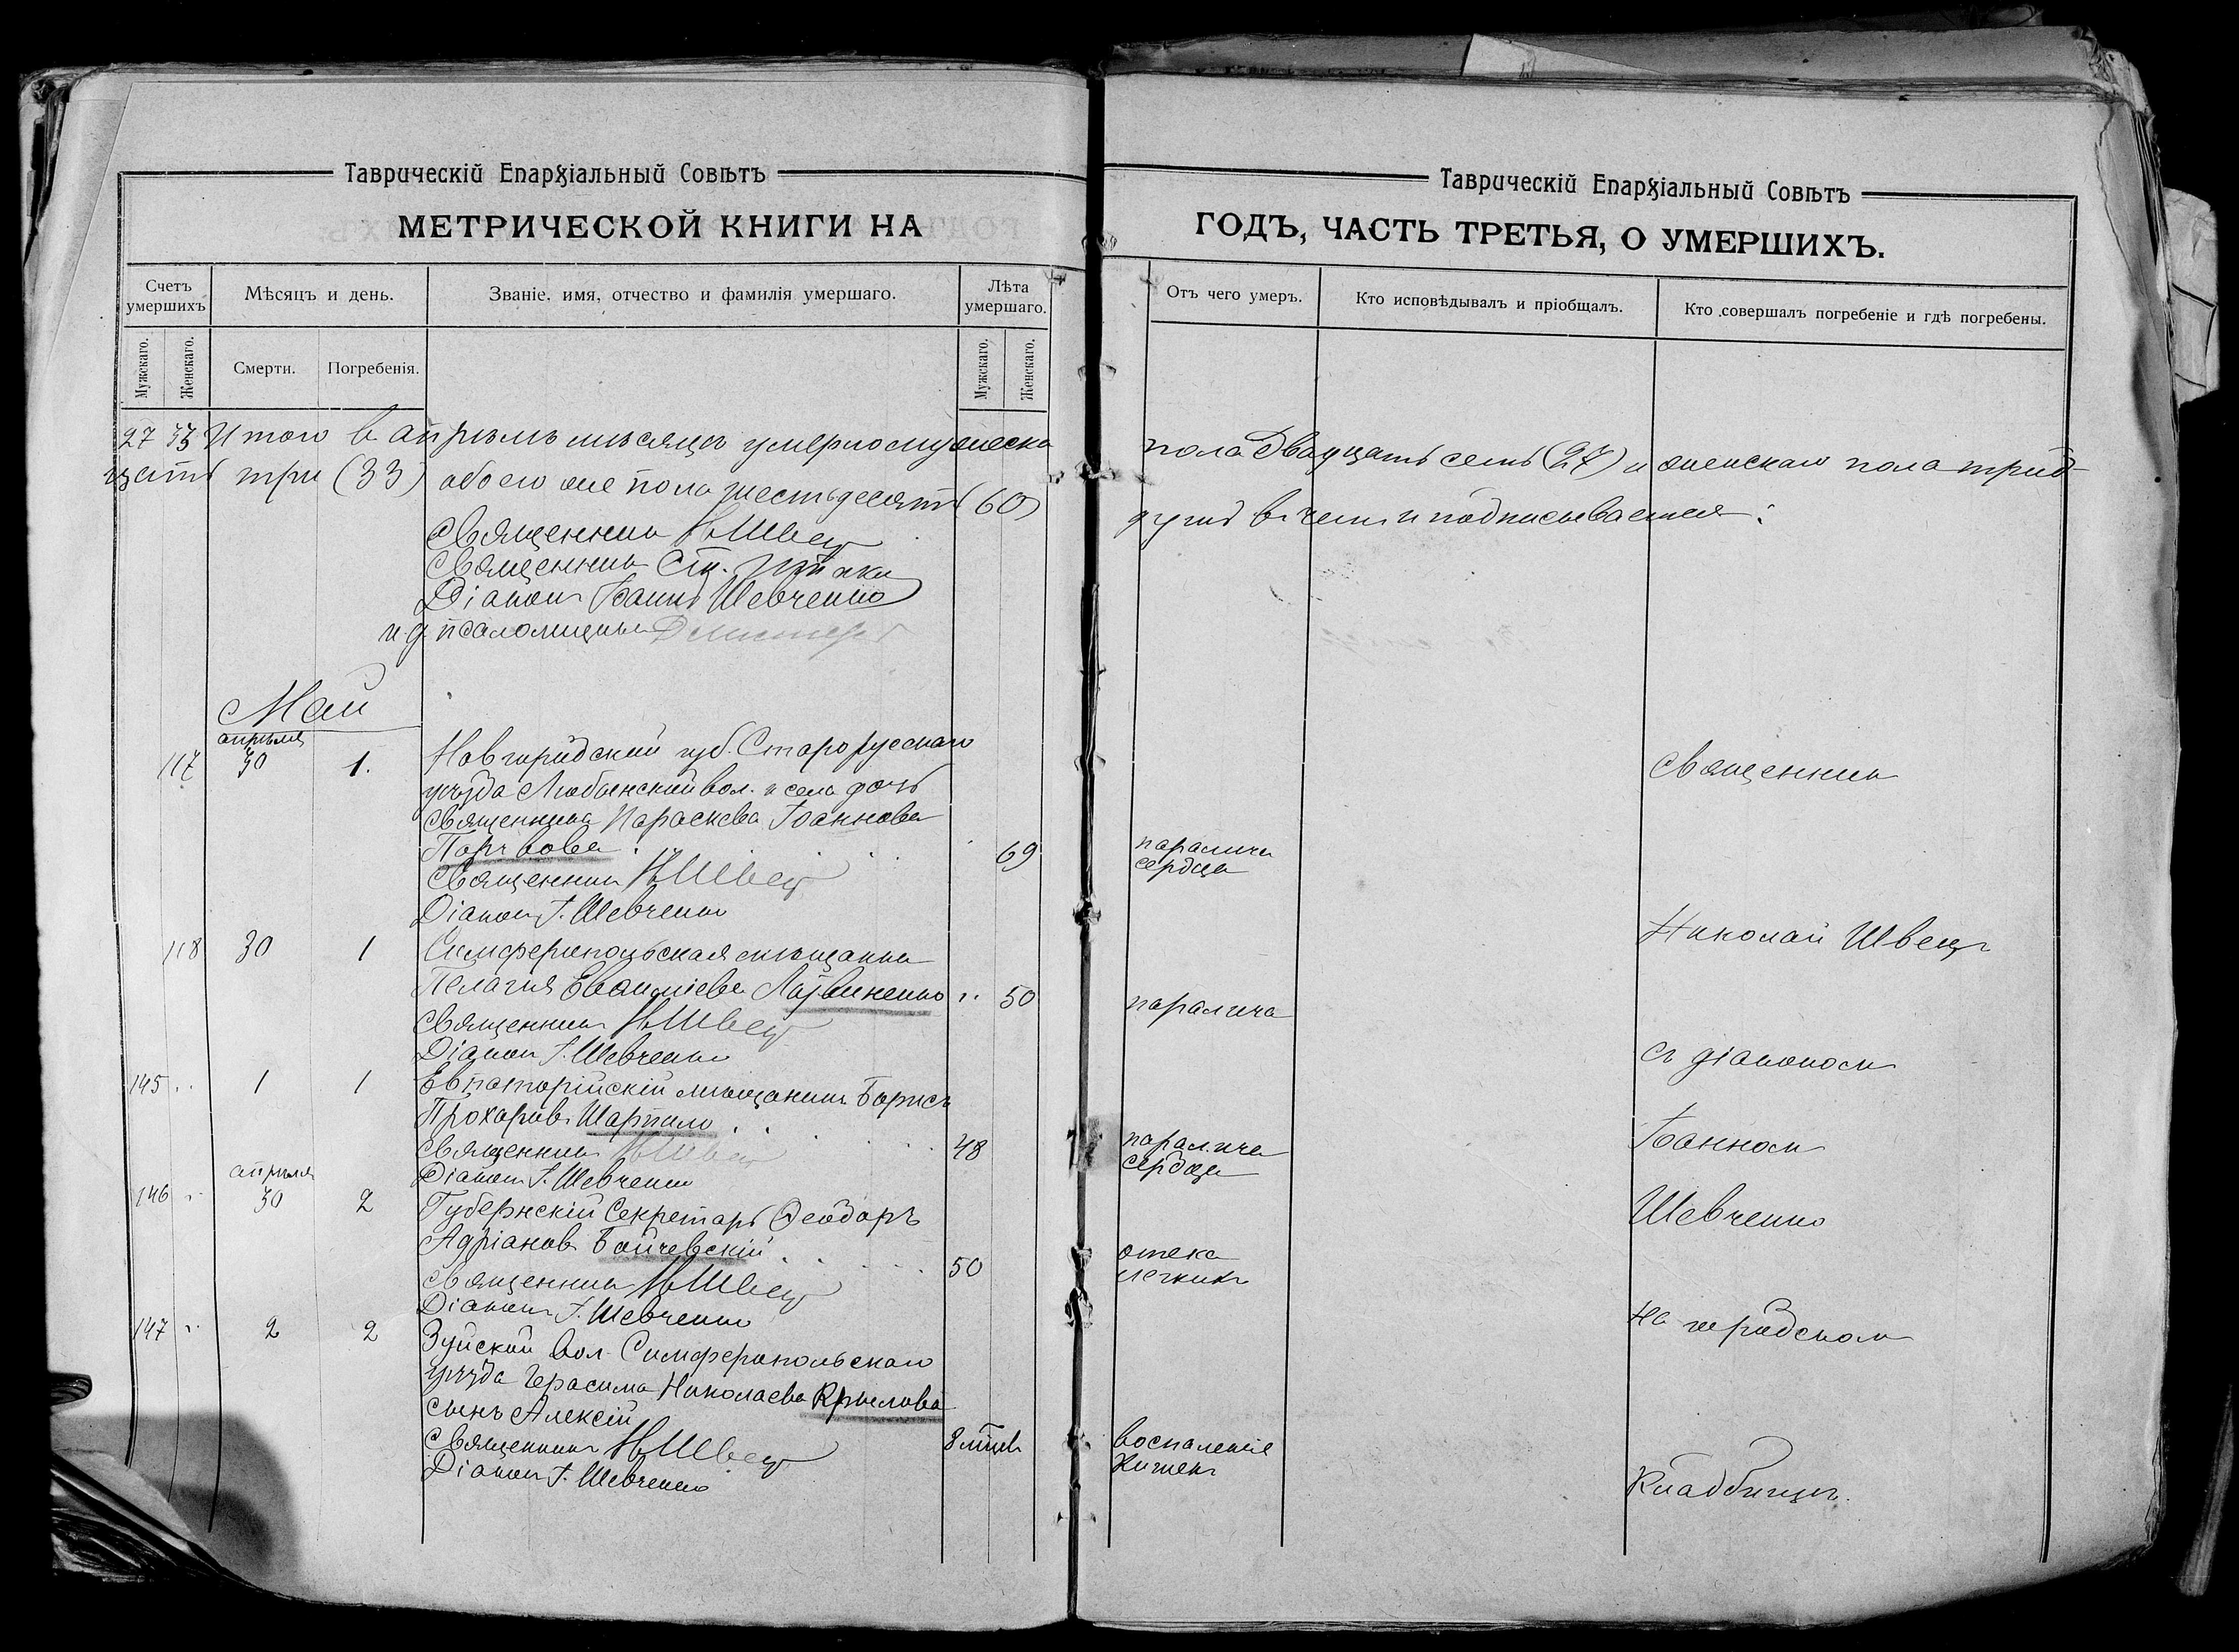 Таврическій Епархіальный Совѣтъ
МЕТРИЧЕСКОЙ КНИГИ НА
Счетъ умершихъ
Мѣсяцъ и день.
Званіе, имя, отчество и фамилія умершаго.
Лѣта умершаго.
Мужскаго.
Женскаго.
Смерти.
Погребенія.
Мужскаго.
Женскаго.
27 33 Итого в апрѣлѣ мѣсяцѣ умерло мужеска
цать три (33) обоего же пола шестьдесятъ (60)
Священник Н Швец
Священник Ст.
Діакон Іоанн Шевченко
и. д. псаломщика
Май
апрѣля
117 30 1. Новгородской губ. Старорусскаго
уѣзда Любынской вол. и села дочь
священника Параскева Іоаннова
69
Священник Н Швец
Діакон І. Шевченко
118 30 1 Симферопольская мѣщанка
Пелагия Литвиненко 50
Священник Н Швец
Діакон І. Шевченко
145 1 1 Евпаторійскій мѣщанин Борисъ
Прохоров Шарпило
Священник Н Швец 48
Діакон І. Шевченко
апрѣля
146 30 2 Губернскій Секретарь Ѳеодоръ
Адріанов Бойчевскій 50
Священник Н Швец
Діакон І. Шевченко
147 2 2 Зуйской вол. Симферопольскаго
уѣзда Герасима Николаева Крылова
сынъ Алексій
Священник Н Швец 8 мѣсяц
Діакон І. Шевченко
Таврическій Епархіальный Совѣтъ
ГОДЪ, ЧАСТЬ ТРЕТЬЯ, О УМЕРШИХЪ.
Отъ чего умеръ.
Кто исповѣдывалъ и пріобщалъ.
Кто совершалъ погребеніе и гдѣ погребены.
пола двадцать семь (27) и женскаго пола трид-
душ в чем и подписываемся:
паралича
сердца
паралича
паралича
сердца
отека
легких
воспаленіе
кишек
Священник
Николай Швец
с діаконом
Іоанном
Шевченко
на городском
кладбищѣ.